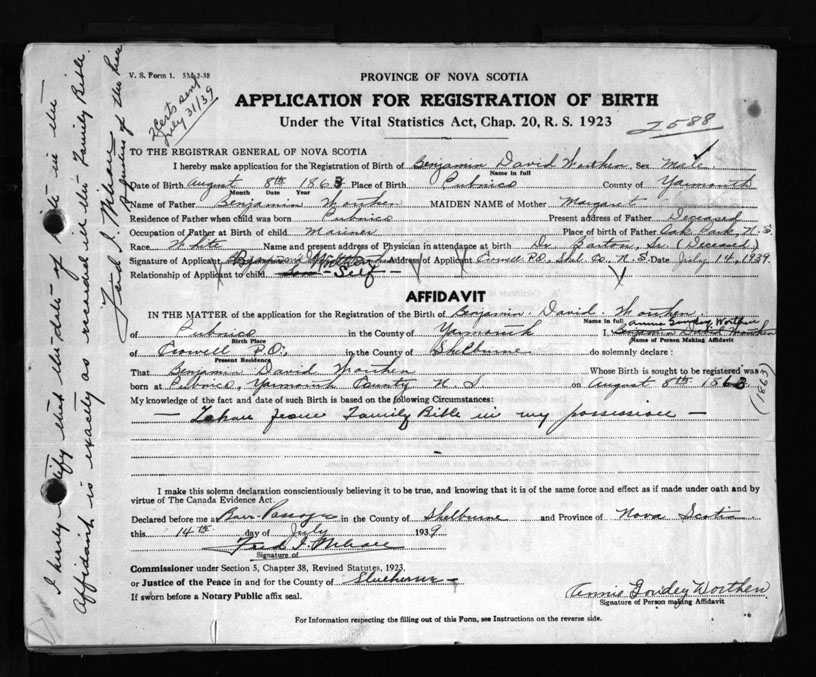 V. S. Form 1. 53A-2-38
2 Certs sent
July 31/39
PROVINCE OF NOVA SCOTIA
APPLICATION FOR REGISTRATION OF BIRTH
Under the Vital Statistics Act, Chap. 20, R. S. 1923
2588
TO THE REGISTRAR GENERAL OF NOVA SCOTIA
I hereby make application for the Registration of Birth of Benjamin David Worthen Sex Male
Name in full
Date of Birth August 8th 1863 Place of Birth Pubnico County of Yarmouth
Month Date Year
Name of Father Benjamin Worthen MAIDEN NAME of Mother Margaret
Residence of Father when child was born Pubnico Present address of Father Deceased
Occupation of Father at Birth of child Mariner Place of birth of Father Oak Park, N.S.
Race White Name and present address of Physician in attendance at birth Dr. Sr. (Deceased)
Signature of Applicant Address of Applicant Crowell P.O. Shel. Co. N.S. Date July 14, 1939
Relationship of Applicant to child Self
AFFIDAVIT
IN THE MATTER of the application for the Registration of the Birth of Benjamin David Worthen
Name in full Annie Gowdey Worthen
of Pubnico in the County of Yarmouth I, Benjamin David Worthen
Birth Place Name of Person Making Affidavit
of Crowell P.O. in the County of Shelburne do solemnly declare :
Present Residence
That Benjamin David Worthen Whose Birth is sought to be registered was
born at Pubnico, Yarmouth County N. S on August 8th 1863
(1863)
My knowledge of the fact and date of such Birth is based on the following Circumstances:
— Taken from Family Bible in my possession —
I make this solemn declaration conscientiously believing it to be true, and knowing that it is of the same force and effect as if made under oath and by
virtue of The Canada Evidence Act.
Declared before me at Barr. Passage in the County of Shelburne and Province of Nova Scotia
this 14th day of July 1939
Signature of
Commissioner under Section 5, Chapter 38, Revised Statutes, 1923,
or Justice of the Peace in and for the County of Shelburne
If sworn before a Notary Public affix seal.
Annie Gowdey Worthen
Signature of Person making Affidavit
For Information respecting the filling out of this Form, see Instructions on the reverse side.
I hereby certify that the date of birth in the
Affidavit is exactly as record in the Family Bible.
Fred I.